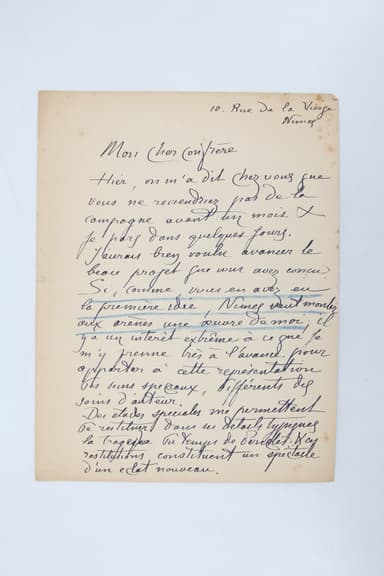 10. Rue de la Vierge
Nimes
Mon cher confrère
Hier, on m'a dit chez vous que
vous ne reviendriez pas de la
campagne avant un mois &
je pars dans quelques jours.
J'aurais bien voulu avancer le
beau projet que vous avez conçu.
Si, comme vous en avez eu
la première idée, Nimes veut monter
aux arènes une œuvre de moi, il
y a un intérêt extrême à ce que je
m'y prenne très à l'avance pour
apporter à cette représentation
des soins spéciaux, différents des
soins d'auteur.
Des études speciales me permettent
de restituer dans ses détails typiques
la tragédie du temps de
restitutions constituent un spectacle
d'un eclat nouveau.